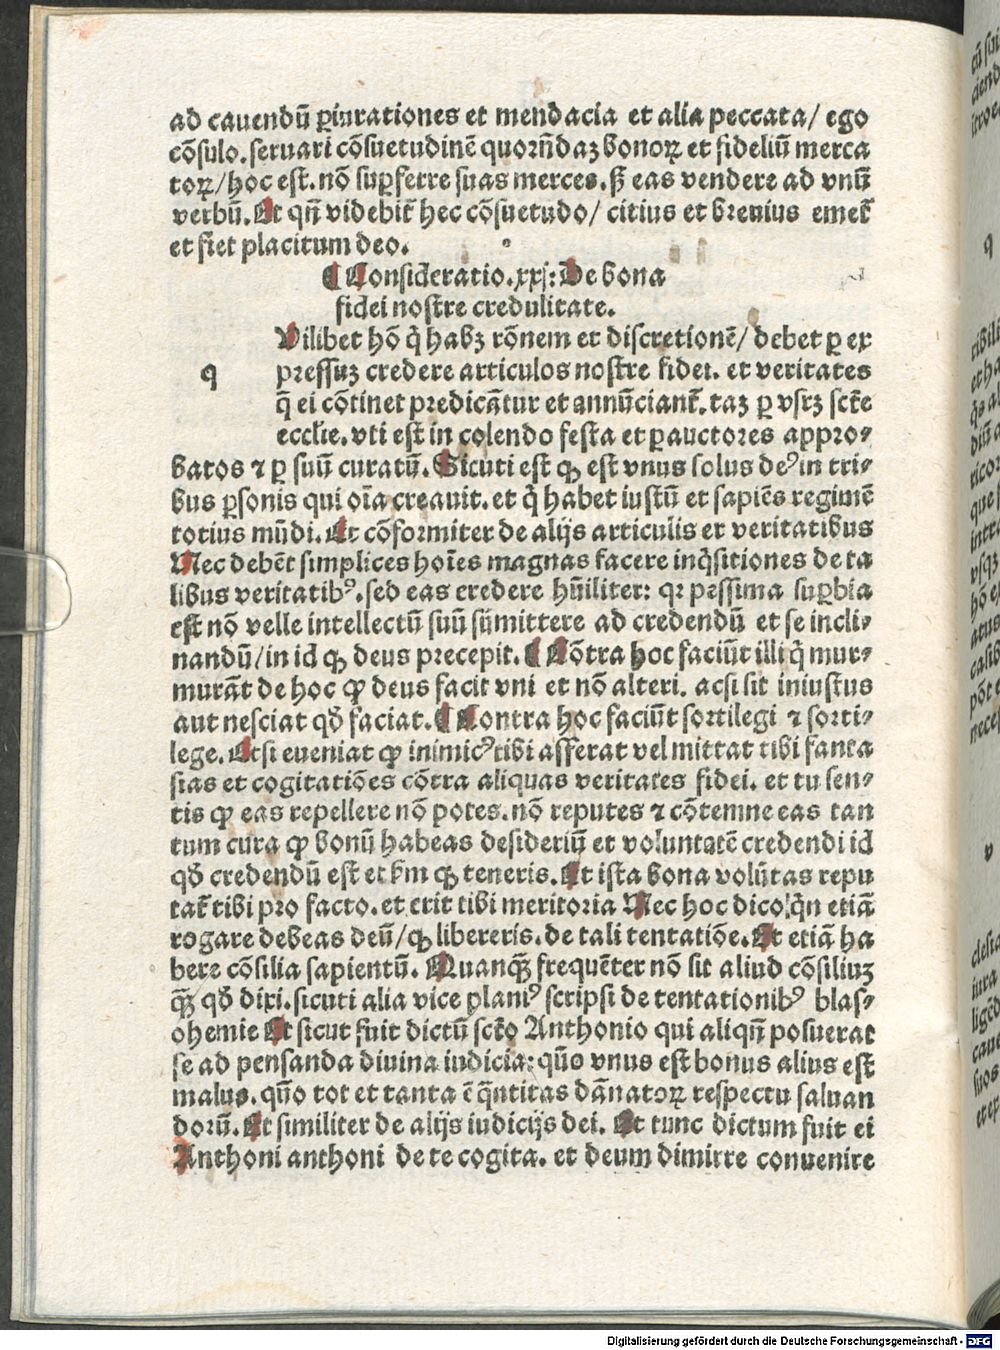 ad cauendū ꝑiurationes et mendacia et alia peccata/ ego
cōsulo. seruari cōsuetudinē quorūdaꝫ bonoꝝ et fideliū merca
toꝝ/ hoc est. nō suꝑferre suas merces. ꝭ eas vendere ad vnū
verbū. Et qn̄ videbit̄ hec cōsuetudo/ citius et breuius emet̄
et fiet placitum deo.
¶ Consideratio.xxj: De bona
fidei nostre credulitate.
Uilibet hō q̄ habꝫ rōnem et discretionē/ debet ꝑ ex
q
pressuꝫ credere articulos nostre fidei. et veritates
q̄ ei cōtinet predicātur et annūciant̄. taꝫ ꝑ vsrꝫ sctē
ecclie. vti est in colendo festa et ꝑ auctores appro⸗
batos ⁊ ꝑ suū curatū. Sicuti est ꝙ est vnus solus deꝰ in tri⸗
bus ꝑsonis qui oīa creauit. et q̄ habet iustū et sapiēs regimē
totius mūdi. Et cōformiter de alijs articulis et veritatibus
Nec debēt simplices hoīes magnas facere inq̄sitiones de ta
libus veritatibꝰ. sed eas credere hūiliter: qꝛ pessima suꝑbia
est nō velle intellectū suū sūmittere ad credendū et se incli⸗
nandū/ in id ꝙ deus precepit. ¶ Cōtra hoc faciūt illi q̄ mur⸗
murāt de hoc ꝙ deus facit vni et nō alteri. acsi sit iniustus
aut nesciat qđ faciat. ¶ Contra hoc faciūt sortilegi ⁊ sorti⸗
lege. Etsi eueniat ꝙ inimicꝰ tibi afferat vel mittat tibi fanta
sias et cogitatiōes cōtra aliquas veritates fidei. et tu sen⸗
tis ꝙ eas repellere nō potes. nō reputes ⁊ cōtemne eas tan
tum cura ꝙ bonū habeas desideriū et voluntatē credendi id
qđ credendū est et ẜm ꝙ teneris. Et ista bona volūtas repu
tat̄ tibi pro facto. et erit tibi meritoria Nec hoc dico q̄n etiā
rogare debeas deū/ ꝙ libereris. de tali tentatiōe. Et etiā ha
bere cōsilia sapientū. Quanqꝫ frequēter nō sit aliud cōsiliuꝫ
qꝫ qđ dixi. sicuti alia vice ꝑlaniꝰ scripsi de tentationibꝰ blas⸗
ohemie Et sicut fuit dictū sctō Anthonio qui aliqn̄ posuerat
se ad pensanda diuina iudicia: quō vnus est bonus alius est
malus. quō tot et tanta ē q̄ntitas dānatoꝝ respectu saluan
dorū. Et similiter de alijs iudicijs dei. Et tunc dictum fuit ei
Anthoni anthoni de te cogita. et deum dimitte conuenire
Digitalisierung gefördert durch die Deutsche Forschungsgemeinschaft - DFG